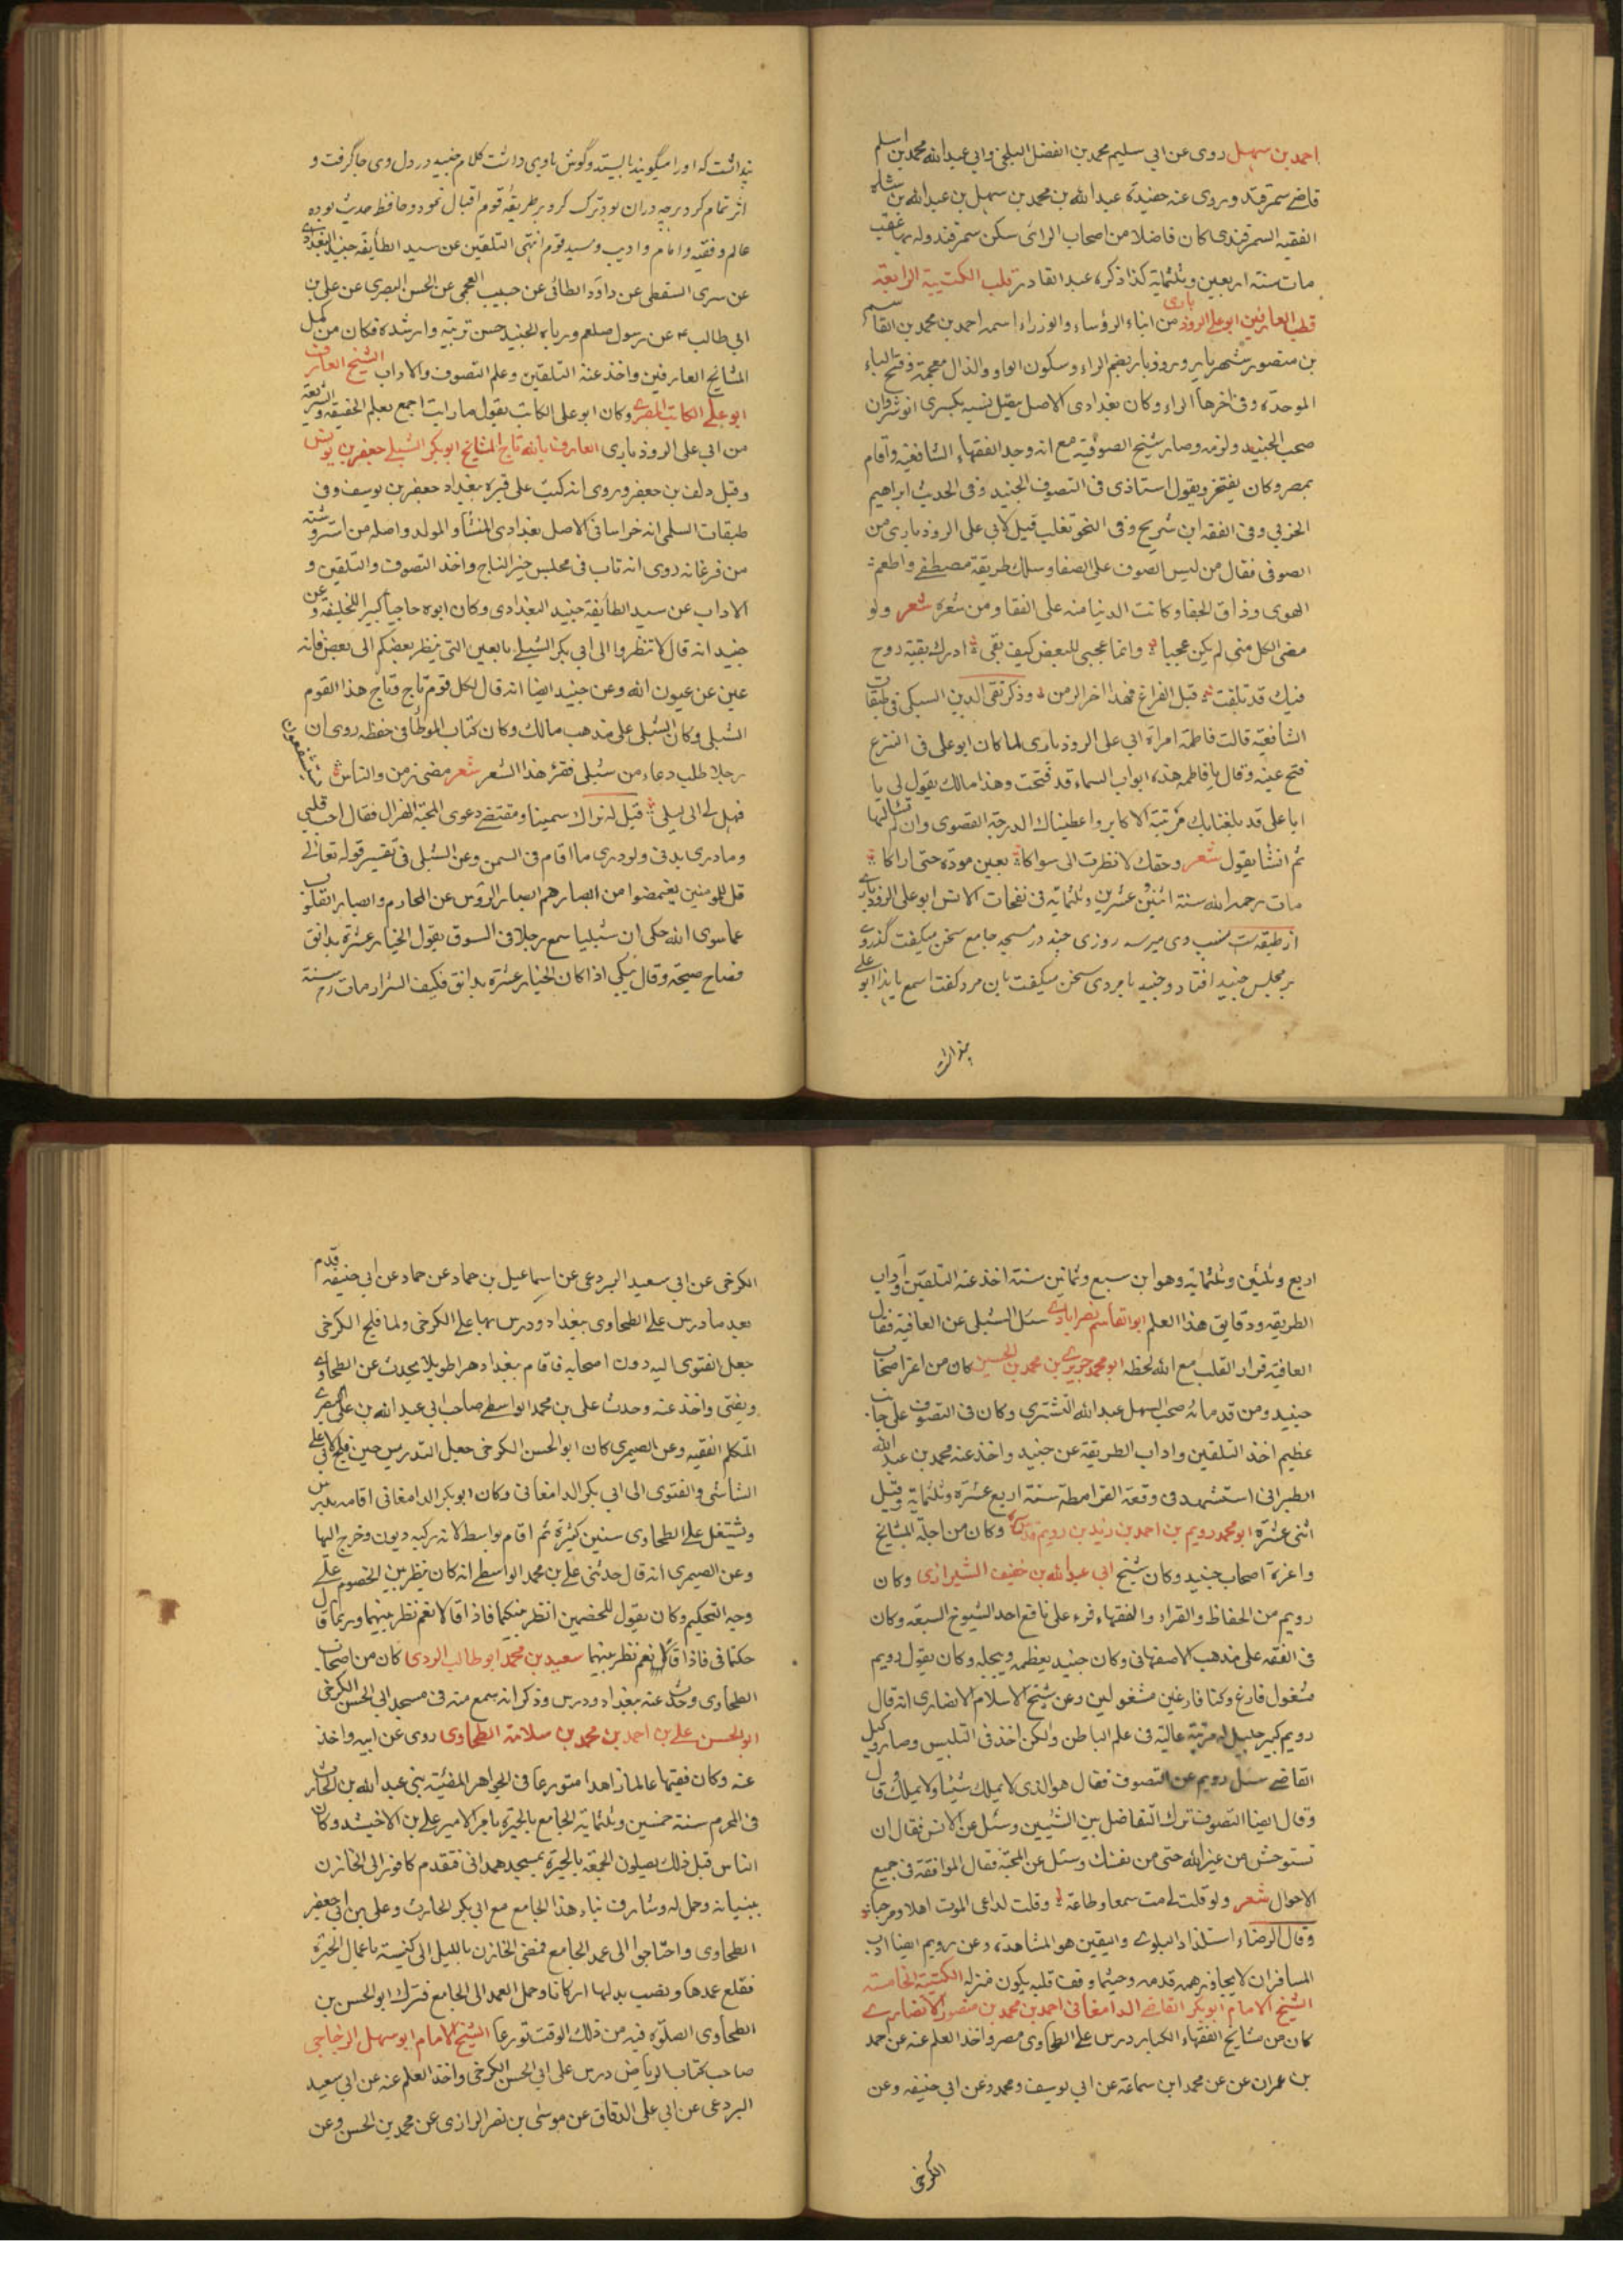 احمد بن سهل روى عن ابى سليم محمد بن الفضل البلخى وابى عبد الله محمد بن اسلم
قاضے سمرقند وروى عنه حفيده عبد الله بن محمد بن سهل بن عبد الله بن
الفقيه السمرقندى كان فاضلا من اصحاب الراى سكن سمرقند وله بها عقب
مات سنة اربعين وثلثماية كذا ذكره عبد القادر قلب الكتيبة الرابعة
قطب العارفين ابو على الروذبارى من ابناء الرؤساء والوزراء اسمه احمد بن محمد بن القاسم
بن منصور بن شهريار وروذبار بضم الراء وسكون الواو والذال معجمة وفتح الباء
الموحدة وفى اخرها الراء وكان بغدادى الاصل يتصل نسبه بكسرى انوشروان
صحب الجنيد ولزمه وصار شيخ الصوفية مع انه وجد الفقهاء الشافعية واقام
بمصر وكان يفتخر ويقول استاذى فى التصوف الجنيد وفى الحديث ابراهيم
الحربى وفى الفقه ابن شريح وفى النحو ثعلب قيل لابى على الروذبارى من
الصوفى فقال من لبس الصوف على الصفا وسلك طريقة مصطفے واطعم
الهوى وذاق الجفا وكانت الدنيا منه على القفا ومن شعره شعر ولو
مضى الكل منى لم يكن عجبا وانما عجبى للبعض كيف بقى ادرك بقية روح
فيك قد تلفت قبل الفراغ فهذا اخر الرمق وذكر تقى الدين السبكى فى طبقات
الشافعية قالت فاطمة امراة ابى على الروذبارى لما كان ابو على فى النزع
فتح عينه وقال يا فاطمه هذه ابواب السماء قد فتحت وهذا مالك يقول لى يا
ابا على قد بلغنابك مرتبة الاكابر واعطيناك الدرجة القصوى وان لم تسالها
ثم انشا يقول شعر وحقك لا نظرت الى سواكا بعين مودة حتى اراكا
مات رحمه الله سنة اثنين وعشرين وثلثماية فى نفحات الانس ابو على الروذبارے
از طبقه رابعه نسب وى ميرسد روزى جنيد در مسجد جامع سخن ميكفت گذر وے
بر مجلس جنيد افتاد وجنيد با مردى سخن ميكفت بان مرد كفت اسمع يا هذا ابو على
پنداشت
پنداشت كه اورا ميگويند بايستد وگوش باوى داشت كلام جنيد در دل وى جا گرفت و
اثر تمام كرد هرچه دران بود ترك كرد وبر طريقه قوم اقبال نمود وحافظ حديث بوده
عالم وفقيه وامام واديب وسيد قوم انتهى التلقين عن سيد الطايفه جنيد البغدادے
عن سرى السقطى عن داود الطائى عن حبيب العجمى عن الحسن البصرى عن على بن
ابى طالب عن رسول صلعم ورباه الجنيد حسن تربية وارشده فكان من كمل
المشايخ العارفين واخذ عنه التلقين وعلم التصوف والاداب الشيخ العارف
ابو علے الكاتب المصرے وكان ابو على الكاتب يقول ما رايت اجمع بعلم الحقيقة والشريعة
من ابى على الروذبارى العارف بالله تاج المشايخ ابو بكر الشبلے جعفر بن يونس
وقيل دلف بن جعفر وروى انه كتب على قبره ببغداد جعفر بن يوسف وفى
طبقات السلمى انه خراسانى الاصل بغدادى المنشأ والمولد واصله من اسروشنه
من فرغانه روى انه تاب فى مجلس خير النساج واخذ التصوف والتلقين و
الاداب عن سيد الطايفة جنيد البغدادى وكان ابوه حاجبا كبيرا للخليفة وعن
جنيد انه قال لا تنظروا الى ابى بكر الشبلے بالعين التى ينظر بعضكم الى بعض فانه
عين من عيون الله وعن جنيد ايضا انه قال لكل قوم تاج وتاج هذا القوم
الشبلى وكان الشبلى على مذهب مالك وكان كتاب الموطأ فى حفظه روى ان
رجلا طلب دعاء من شبلى فقرئ هذا الشعر شعر مضى زمن والناس يستشفعون بى
فهل لے الى ليلى قيل له نراك سمينا ومقتضے دعوى المحبة الهزال فقال احب قلبى
وما درى بدنى ولو درى ما اقام فى السمن وعن الشبلى فى تفسير قوله تعالے
قل للمومنين يغمضوا من ابصارهم ابصار الروس عن المحارم وابصار القلوب
عما سوى الله حكى ان شبليا سمع رجلا فى السوق يقول الخيار عشرة بدانق
فصاح صيحة وقال يبكى اذا كان الخيار عشرة بدانق فكيف الشرار مات رح سنة
اربع وثلثين وثلثماية وهو ابن سبع وثمانين سنة اخذ عنه التلقين واداب
الطريقه ودقايق هذا العلم ابو القاسم نصرابادے سئل الشبلى عن العافية فقال
العافية قرار القلب مع الله لحظه ابو محمد جريرے بن محمد بن الحسين كان من اعز اصحاب
جنيد ومن قدمائه صحب السهل عبد الله التشترى وكان فى التصوف على جانب
عظيم اخذ التلقين واداب الطريقة عن جنيد واخذ عنه محمد بن عبد الله
الطبرانى استشهد فى وقعة القرامطة سنة اربع عشرة وثلثماية وقيل
اثنى عشرة ابو محمد رويم بن احمد بن زيد بن رويم وكان من اجلة المشايخ
واعزة اصحاب جنيد وكان شيخ ابى عبد الله بن خفيف الشيرازى وكان
رويم من الحفاظ والقراء والفقهاء قرء على نافع احد الشيوخ السبعة وكان
فى الفقه على مذهب الاصفهانى وكان جنيد يعظمه ويبجله وكان يقول رويم
مشغول فارغ وكنا فارغين مشغولين وعن شيخ الاسلام الانصارى انه قال
رويم كبير جليل له مرتبة عالية فى علم الباطن ولكن اخذ فى التلبيس وصار وكيل
القاضے سئل رويم عن التصوف فقال هو الذى لا يملك شيئا ولا يملك قال
وقال ايضا التصوف ترك التفاضل بين الشيئين وسئل عن الانس فقال ان
تستوحش من غير الله حتى من نفسك وسئل عن المحبة فقال الموافقة فى جميع
الاحوال شعر ولو قلت لے مت سمعا وطاعة وقلت لداعى الموت اهلا ومرحبا
وقال الرضاء استلذاذ البلوے واليقين هو المشاهدة وعن رويم ايضا ادب
المسافر ان لا يجاوز همه قدمه وحيثما وقف قلبه يكون منزله الكتيبة الخامسة
الشيخ الامام ابو بكر القاضے الدامغانى احمد بن محمد بن منصور الانصارے
كان من مشايخ الفقهاء الكبار درس على الطحاوى مصر واخذ العلم عنه عن احمد
بن عمران عن محمد ابن سماعة عن ابى يوسف ومحمد وعن ابى حنيفه وعن
الكرخى
الكرخى عن ابى سعيد البردعى عن اسماعيل بن حماد عن حماد عن ابى حنيفه قدم
بعد ما درس على الطحاوى بغداد ودرس بها على الكرخى ولما فلج الكرخى
جعل الفتوى اليه دون اصحابه فاقام ببغداد دهرا طويلا يحدث عن الطحاوے
ويفتى واخذ عنه وحدث على بن محمد الواسطے صاحب ابى عبد الله بن على البصرے
المتكلم الفقيه وعن الصيمرى كان ابو الحسن الكرخى جعل التدريس حين فلج لابى على
الشاشى والفتوى الى ابى بكر الدامغانى وكان ابو بكر الدامغانى اقامه يدرس
ويشتغل على الطحاوى سنين كثيرة ثم اقام بواسط لانه ركبه ديون وخرج اليها
وعن الصيمرى انه قال حدثنى على بن محمد الواسطے انه كان ينظر بين الخصوم علے
وجه التحكيم وكان يقول للخصمين انظر بينكما فاذا قالا نعم نظر بينهما وربما قال
حكمتمانى فاذا قالا نعم نظر بينهما سعيد بن محمد ابو طالب البردعى كان من اصحاب
الطحاوى وحدث عنه ببغداد ودرس وذكر انه سمع منه فى مسجد ابى الحسن الكرخى
ابو الحسن على بن احمد بن محمد بن سلامة الطحاوى روى عن ابيه واخذ
عنه وكان فقيها عالما زاهدا متورعا فى الجواهر المضئية بنى عبد الله بن الحارث
فى المحرم سنة خمسين وثلثماية الجامع بالجيزة بامر الامير على بن الاخشيد وكان
الناس قبل ذلك يصلون الجمعة بالجيزة بمسجد همدانى فتقدم كافور الى الخازن
ببنيانه وحمل له وشارف بناء هذا الجامع مع ابى بكر الحارث وعلى بن ابى جعفر
الطحاوى واحتاجوا الى عمد الجامع فمضى الخازن بالليل الى كنيسة باعمال الجيزة
فقلع عمدها ونصب بدلها اركانا وحمل العمد الى الجامع فترك ابو الحسن بن
الطحاوى الصلوة فيه من ذلك الوقت تورعا الشيخ الامام ابو سهل الزجاجى
صاحب كتاب الرياض درس على ابى الحسن الكرخى واخذ العلم عنه عن ابى سعيد
البردعى عن ابى على الدقاق عن موسى بن نصر الرازى عن محمد بن الحسن وعن